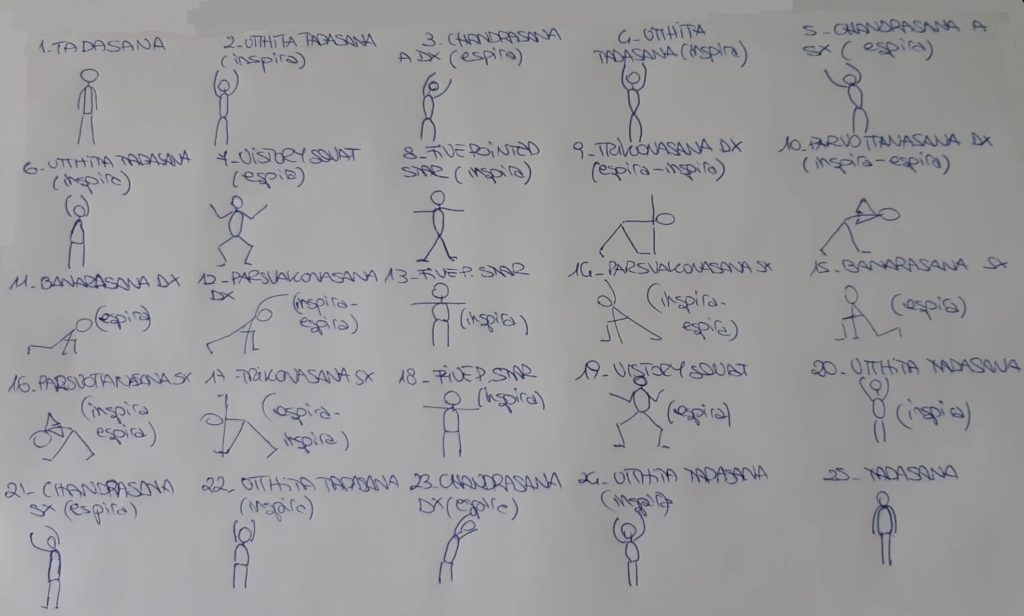 1. TADASANA
2. UTTHITA TADASANA
(inspira)
3. CHANDRASANA
A DX (espira)
4. UTTHITA
TADASANA (inspira)
5. CHANDRASANA A
SX (espira)
6. UTTHITA TADASANA
(inspira)
7. VISTORY SQUAT
(espira)
8. FIVE POINTED
STAR (inspira)
9. TRIKONASANA DX
(espira-inspira)
10. PARVOTTANASANA DX
(inspira-espira)
11. BANARASANA DX
(espira)
12. PARSVAKONASANA
DX
(inspira-
espira)
13. FIVE P. STAR
(inspira)
14. PARSVAKONASANA SX
(inspira-
espira)
15. BANARASANA SX
(espira)
16. PARSVOTTANASANA SX
(inspira
espira)
17. TRIKONASANA SX
(espira-
inspira)
18. FIVE P. STAR
(inspira)
19. VISTORY SQUAT
(espira)
20. UTTHITA TADASANA
(inspira)
21. CHANDRASANA
SX (espira)
22. UTTHITA TADASANA
(inspira)
23. CHANDRASANA
DX (espira)
24. UTTHITA TADASANA
(inspira)
25. TADASANA